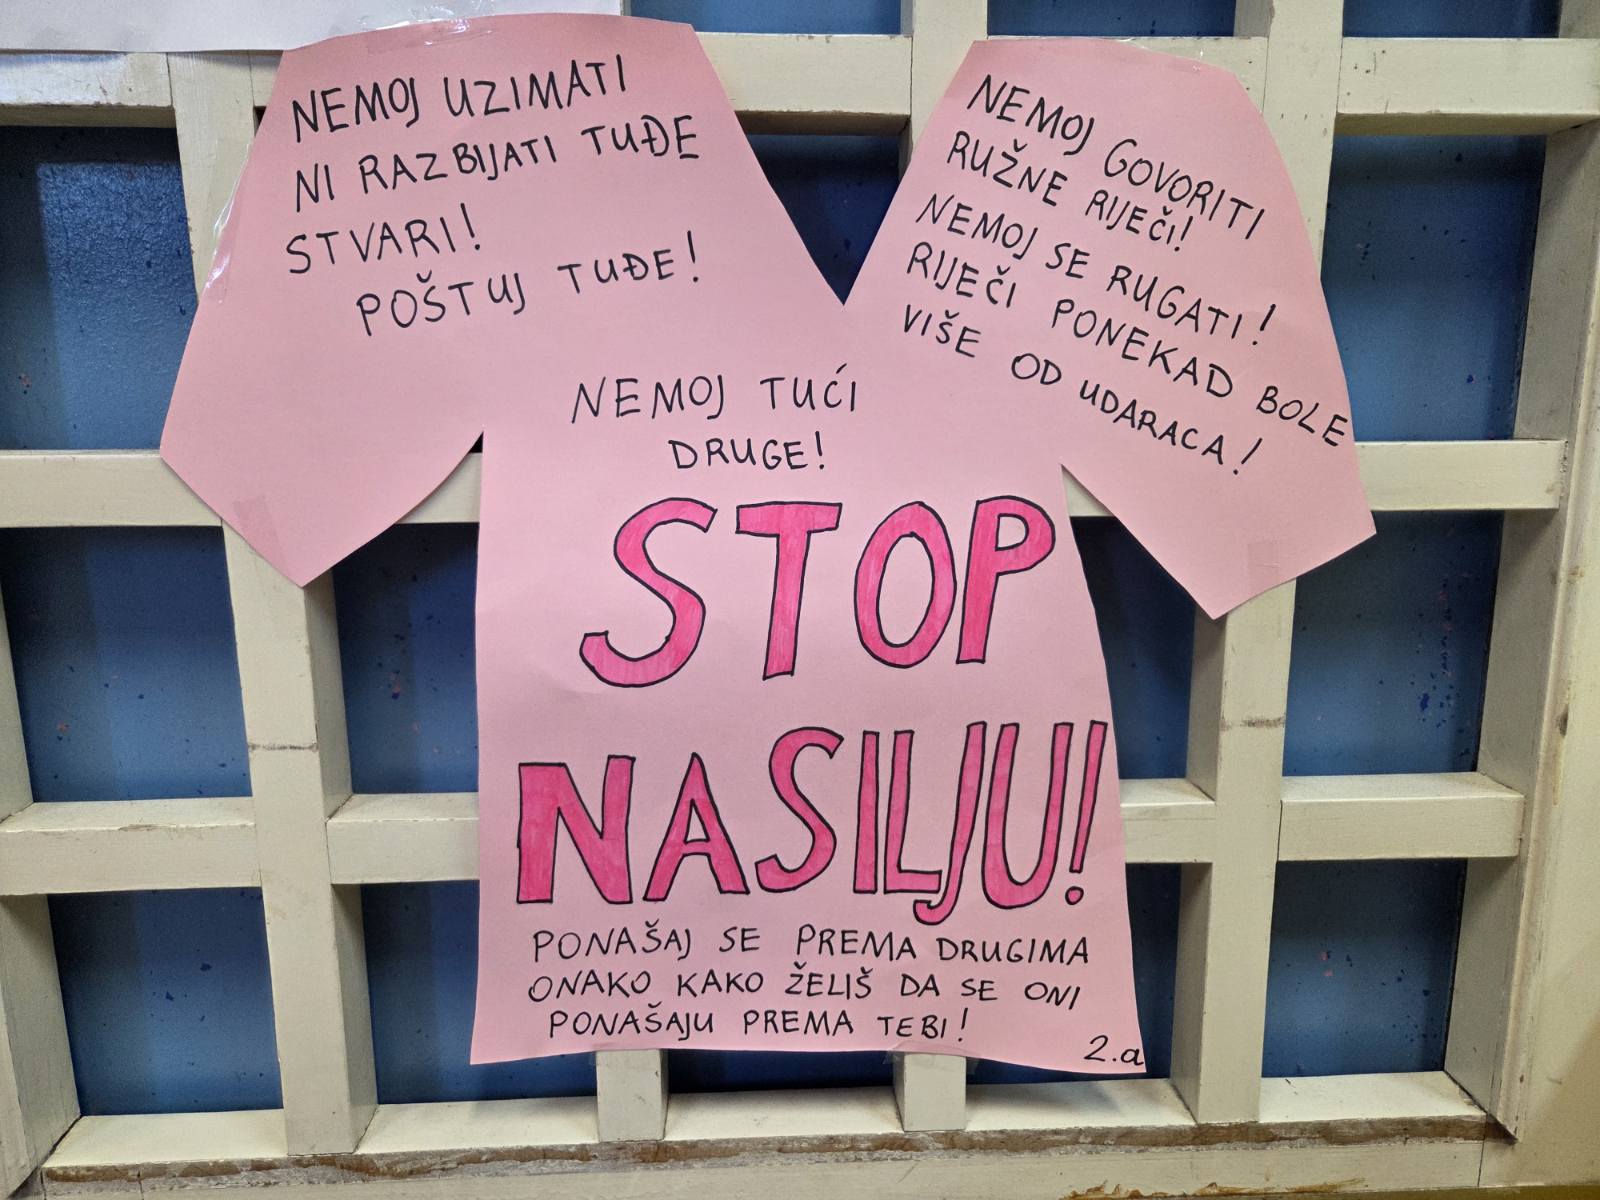 NEMOJ UZIMATI
NI RAZBIJATI TUĐE
STVARI!
POŠTUJ TUĐE!
NEMOJ GOVORITI
RUŽNE RIJEČI!
NEMOJ SE RUGATI!
RIJEČI PONEKAD BOLE
VIŠE OD UDARACA!
NEMOJ TUĆI
DRUGE!
STOP
NASILJU!
PONAŠAJ SE PREMA DRUGIMA
ONAKO KAKO ŽELIŠ DA SE ONI
PONAŠAJU PREMA TEBI!
2.a